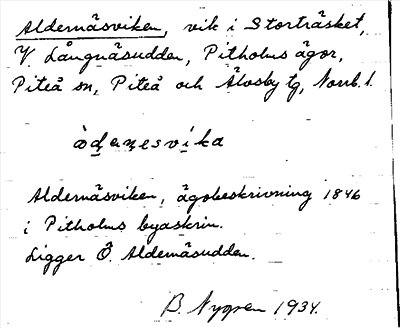 Aldernäsviken, vik i Storträsket,
V. Långnäsudden, Pitholms ägor,
Piteå sn, Piteå och Älvsby tg, Norrb. l.
àḍeṇesvika
Aldernäsviken, ägobeskrivning 1846
i Pitholms byaskrin.
Ligger Ö. Aldernäsudden.
B. Nygren 1934.